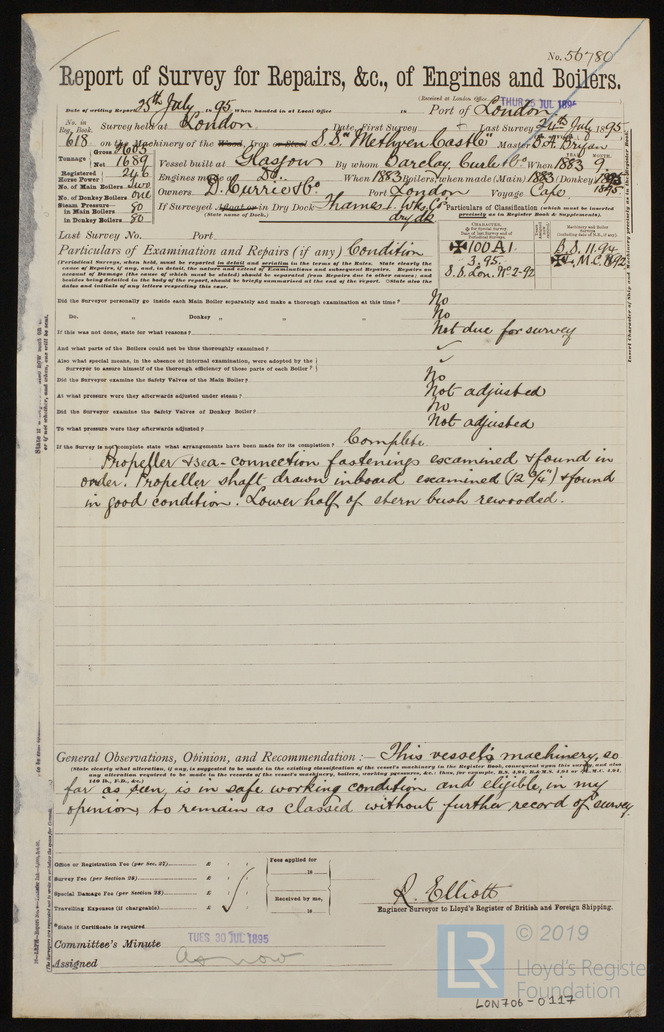 No. 56780
Report of Survey for Repairs, &c., of Engines and Boilers.
(Received at London Office THUR 25 JUL 1895
Date of writing Report 25th July 1895 When handed in at Local Office 18 Port of London
No. in Reg. Book. Survey held at London Date, First Survey Last Survey 24th July 1895
618 on the Machinery of the Wood, Iron or Steel S.S. "Methven Castle" Master
Tonnage Gross Net 1689 Vessel built at Glasgow By whom Barclay, Curle & Co When 1883 9
YEAR. MONTH.
Registered Horse Power 246 Engines made at Do. When 1883 Boilers, when made (Main) 1883 (Donkey)
No. of Main Boilers two
No. of Donkey Boilers one Owners D. Currie & Co Port London Voyage Cape
Steam Pressure in Main Boilers 80 If Surveyed Afloat or in Dry Dock Thames I. Wks. Co's
in Donkey Boilers 80 (State name of Dock.) dry dk
Particulars of Classification (which must be inserted precisely as in Register Book & Supplements).
Last Survey No. Port
Particulars of Examination and Repairs (if any) Condition
✠100A1 B.S. 11.94
3.95. ✠L.M.C. 11.92
S.S. Lon. No. 2-92
(Periodical Surveys, when held, must be reported in detail and seriatim in the terms of the Rules. State clearly the
cause of Repairs, if any, and, in detail, the nature and extent of Examinations and subsequent Repairs. Repairs on
account of Damage (the cause of which must be stated) should be separated from Repairs due to other causes; and
besides being detailed in the body of the report, should be briefly summarised at the end of the report. State also the
dates and initials of any letters respecting this case.)
Did the Surveyor personally go inside each Main Boiler separately and make a thorough examination at this time? No
Do. „ Donkey „ „ „ No
If this was not done, state for what reasons? Not due for survey
And what parts of the Boilers could not be thus thoroughly examined? ✓
Also what special means, in the absence of internal examination, were adopted by the
Surveyor to assure himself of the thorough efficiency of those parts of each Boiler? ✓
Did the Surveyor examine the Safety Valves of the Main Boiler? No
At what pressure were they afterwards adjusted under steam? Not adjusted
Did the Surveyor examine the Safety Valves of Donkey Boiler? No
To what pressure were they afterwards adjusted? Not adjusted
If the Survey is not complete state what arrangements have been made for its completion? Complete.
Propeller & sea-connection fastenings examined & found in
order. Propeller shaft drawn inboard examined (12 3/4") & found
in good condition. Lower half of stern bush rewooded.
General Observations, Opinion, and Recommendation :— This vessel's machinery, so
(State clearly what alteration, if any, is suggested to be made in the existing classification of the vessel's machinery in the Register Book, consequent upon this survey, and also
any alteration required to be made in the records of the vessel's machinery, boilers, working pressures, &c.: thus, for example, B.S. 4,94, B.&M.S. 4,94 or L.M.C. 4,94,
140 lb., F.D., &c.)
far as seen, is in safe working condition and eligible, in my
opinion, to remain as classed without further record of survey.
Office or Registration Fee (per Sec. 27) £ : : Fees applied for
Survey Fee (per Section 28) £ : : 18
Special Damage Fee (per Section 28) £ : : Received by me,
Travelling Expenses (if chargeable) £ : : 18
R. Elliott
Engineer Surveyor to Lloyd's Register of British and Foreign Shipping.
*State if Certificate is required
Committee's Minute TUES 30 JUL 1895
Assigned as now
LR
© 2019
Lloyd's Register
Foundation
LON706-0117